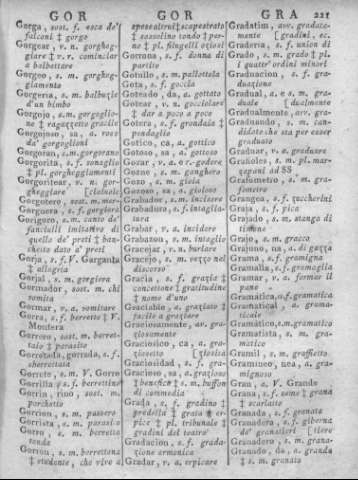 GOR
GOR
GRA 221
Gorga, sost. f. esca de'
falconi ‡ gorgo
Gorgear, v. n. gorgheg-
giare ‡ v. r. cominciar
a balbettare
Gorgeo, s. m. gorgheg-
giamento
Gorgeria, s. m. balbuzie
d'un bimbo
Gorgojo, s. m. gorgoglio-
ne ‡ ragazzetto gracile
Gorgojoso, sa, a. roso
da' gorgoglioni
Gorgoran, s.m. gorgorano
Gorgorita, s. f. sonaglio
‡ pl. gorgheggiamenti
Gorgoritear, v. n. gor-
gheggiare
Gorgotero, sost. m. mer-
Gorguera, s. f. gorgiera
Gorigori, s. m. canto de'
fanciulli imitativo di
quello de' preti ‡ ban-
chetto dato a' preti
Gorja, s. f. V. Garganta
‡ allegria
Gorjal, s. m. gorgiera
Gormador, sost. m. chi
vomita
Gormar, v. a. vomitare
Gorra, s. f. berretto ‡ V.
Montera
Gorrero, sost. m. berret-
taio ‡ parasito
Gorretada, gorrada, s. f.
sberrettata
Gorrete, s. m. V. Gorro
Gorrilla, s. f. berrettina
Gorrin, rino, sost. m.
porchetto
Gorrion, s. m. passero
Gorrista, s. m. parasito
Gorro, s. m. berretto
tondo
Gorron, s. m. berrettone
‡ studente, che vive a
spese altrui ‡ scapestrato
‡ sassolino tondo ‡ per-
no ‡ pl. filugelli oziosi
Gorrona, s. f. donna di
partito
Gotullo, s. m. pallottola
Gota, s. f. goccia
Goteado, da, a. gottato
Gotear, v. n. gocciolare
‡ dar a poco a poco
Gotera, s. f. grondaia ‡
pendaglio
Gotico, ca, a. gottico
Gotoso, sa, a. gottoso
Gozar, v. a. e r. godere
Gozne, s. m. ganghero
Gozo, s. m. gioia
Gozoso, sa, a. gioioso
Grabador, s. m. incisore
Grabadura, s. f. intaglia-
tura
Grabar, v. a. incidere
Grabazon, v. m. intaglio
Gracejar, v. n. burlare
Gracejo, s. m. vezzo nel
discorso
Gracia, s. f. grazia ‡
concetto ‡ gratitudine
‡ nome d'uno
Graciable, a. grazioso ‡
facile a graziare
Graciosamente, av. gra-
ziosamente
Graciosico, ca, a. gra-
ziosetto
Graciosidad, s. f. gra-
Gracioso, sa, a. grazioso
‡ benefico ‡ s. m. buffon
di commedia
Grada, s. f. gradino ‡
predella ‡ grata ‡ er-
pice ‡ pl. tribunale ‡
gradini del teatro
Gradacion, s. f. grada-
zione armonica
Gradar, v. a. erpicare
Gradatim, avv. gradata-
mente [gradini, ec.
Graderia, s. f. union di
Grado, s. m. grado ‡ pl.
i quatt' ordini minori
Graduacion, s. f. gra-
duazione
Gradual, a. e s. m. gra-
duale
Gradualmente, avv. gra-
Graduando, s. m. can-
didato che sta per esser
graduato
Graduar, v. a. graduare
Grafioles, s. m. pl. mar-
zapani ad SS
Grafometro, s. m. gra-
fometro
Grangea, s. f. zuccherini
Graja, s. f. pica
Grajado, s. m. stanga di
timone
Grajo, s. m. gracco
Grajuno, na, a. di gazza
Grama, s. f. gramigna
Gramalla, s. f. gramaglia
Gramar, v. a. formar il
pane
Gramatica, s. f. gramatica
Gramatical, a. grama-
ticale
Gramatico, s. m. gramatico
Gramatista, s. m. grama-
tico
Gramil, s. m. graffietto
Gramineo, nea, a. gra-
mignoso
Gran, a. V. Grande
Grana, s. f. seme ‡ grana
‡ scarlatto
Granada, s. f. granata
Granadera, s. f. giberna
de' granatieri
Granadero, s. m. grana-
Granado, da, a. granito
‡ s. m. granato